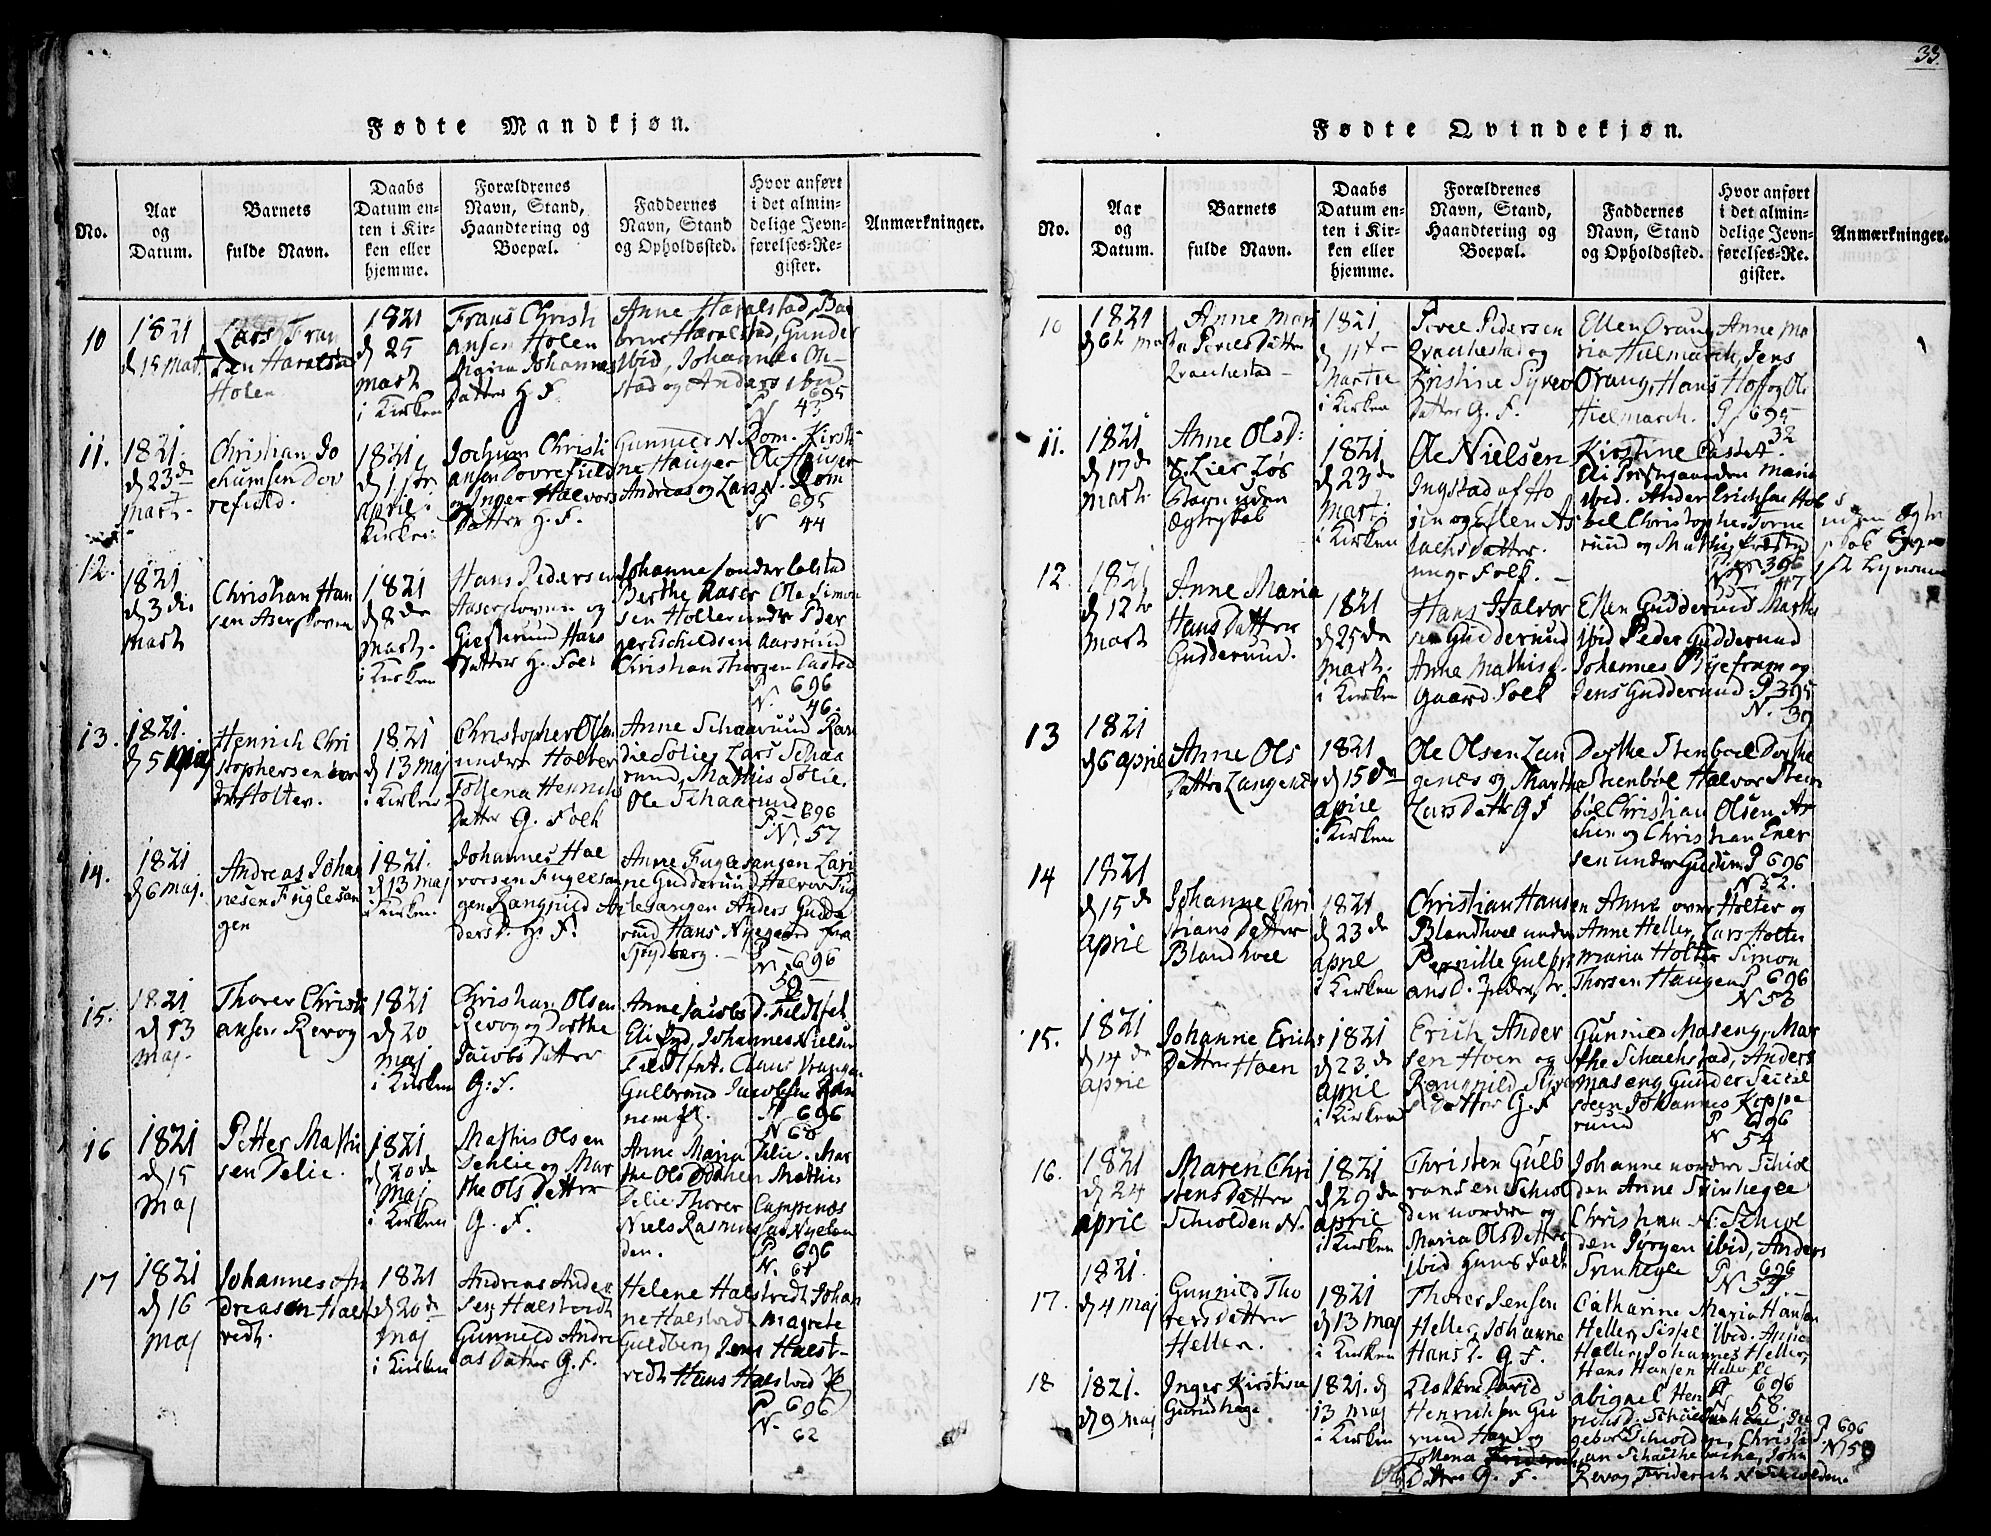 33.
Fødte Mandkjøn.
No.
Aar
og
Datum.
Barnets
fulde Navn.
Daabs
Datum en-
ten i Kir-
ken eller
hjemme.
Forældrenes
Navn, Stand,
Haandtering og
Boepæl.
Faddernes
Navn, Stand
og Opholdssted.
Hvor anført
i det almin-
delige Jevn-
førelses-Re-
gister.
Anmærkninger.
10
1821
d 15 Mart.
Lars Fran
sen Haralstad
Holen
1821
d 25
Marti
i Kirken
Frans Christi
ansen Holen
Johannes
Datter G. F.
Anne Haralstad, Bar
broe Haralstad, Gunder
ibid, Johannes Oh-
stad og Anders ibid
P 695
N. 43
11.
1821.
d 23de
Mart.
Christian Jo
chumsen Dov
refield.
1821
d 1ste
April
i Kirke.
Jochum Christi
ansen Dovrefield
og Inger Halvors
Datter G. F.
Gunnild N. Rom. Kirsti
ne Hauger Ole Hauger
Andreas og Lars N. Rom
P 695
N 44
12.
1821
d 3die
Marti
Christian Han
sen Aserskoven
1821
d 8de
Mart.
i Kirken
Hans Pedersen
Aaserskoven og
Giesterund Hans
Datter G. Folk
Johanne sondre
Berthe Aaser Ole Simon
sen Holter nedre Ber
ger Eschildsen Aarsrud
Christian Thorgen Castet
P. 696
N. 46.
13.
1821.
d 5 Maj
Henrich Chri
stophersen
Holter.
1821
d 13 Maj
i Kirken
Christopher Olsen
nedre Holter
Tollena Henrichs
Datter G. Folk
Anne Schaarud Ran
die Solie, Lars Schaa
rud, Mathis Solie.
Ole Schaarud
P. 696
N. 57
14.
1821
d 6 Maj.
Andreas Johan
nesen Fuglesan
gen
1821.
d 13 Maj
i Kirken.
Johannes Hal
vorsen Fuglesan
gen Rangnild An
ders D. G. F.
Anne Fuglesangen Lari
ne Gudderud Halvor Fug
lesangen Anders Gudde
rud Hans Nyegaard fra
Spydberg.
P. 696
N.
15.
1821
d 13
Maj.
Thorer Christi
ansen Revog
1821
d 20
Maj
i Kirken
Christian Olsen
Revog og Dorthe
Jacobs Datter
G. F.
Anne Jacobs D. Feldtfet
Eli ibid, Johannes Nielsen
Feldtfet. Claus Vrangen
Gulbrand Jacobsen
P 696
N 60
16
1821
d 15
Maj
Petter Mathi
sen Delie.
1821
d 20de
Maj
i Kirken
Mathis Olsen
Dehlie og Mar
the Ols Datter
G. F.
Anne Maria Delie. Mar
the Ols Mathis
Delie Thorer Campenæs
Niels Rasmus
den.
P. 696
N. 61
17
1821
d 16
Maj
Johannes An
dreasen Halst
vedt.
1821
d 20de
Maj
i Kirken
Andreas Ander
sen Halstvedt
Gunnild Andre
as Datter G. F.
Helene Halstvedt Johan
ne Halstvedt Magrete
Guldberg Jens Halst-
vedt Hans Halstved
P 696
N.
62
Fødte Qvindekjøn.
No.
Aar
og
Datum.
Barnets
fulde Navn.
Daabs
Datum en-
ten i Kir-
ken eller
hjemme.
Forældrenes
Navn, Stand,
Haandtering og
Boepæl.
Faddernes
Navn, Stand
og Opholdssted.
Hvor anført
i det almin-
delige Jevn-
førelses-Re-
gister.
Anmærkninger.
10
1821
d 6te Mart
Anne Mari
Datter
1821
d 11te
Martii
i Kirken
Pedersen
og
Kristine Syver
Datter G. F.
Ellen Oraug Anne Ma
ria Hielmarch, Jens
Oraug, Hans Hoff og Ole
Hielmarch. P. 695
N 32
11.
1821
d 17de
Marti
Anne Ols D:
løs
Barn uden
Ægteskab
1821
d 23de
Mart.
i Kirken
Ole Nielsen
Ingstad af Ho
len og Ellen As
lachs Datter.
unge Folk.
Kirstine Castet.
Maria
ibid. Ander Erichsen Hob
bel Christopher Torne
rud og
P 396
N 47
uden Ægte
skab
12
1821
d 12te
Marti
Anne Maria
Hans Datter
Gudderud.
1821
d 25de
Mart.
i Kirken
Hans Halvor
sen Gudderud
Anna Mathis
Gaard Folk
Ellen Gudderud Marthe
ibid Peder Gudderud
Johannes og
Jens Gudderud. P. 395
N. 39
13
1821
d 6 April
Anne Ols
Datter Langenæs
1821
d 15de
April
i Kirken
Ole Olsen Lan
genæs og Marthe
Lars Datter G F
Dorthe Stenbøl Dorthe
Stenbøl Halvor Sten
bøl Christian Olsen As
chen og Christian Ener
sen undre P 696
N 52.
14
1821
d 15de
April
Johanne Chri
stians Datter
Blandhoel
1821
d 23de
April
i Kirken
Christian Hansen
Blandhoel under
Pernille Gulbr
ans D. Inderstr.
Anne over Holter og
Anne Heller, Lars Holter
Maria Holter Simon
Thorsen Haugen P 696
N 53
15.
1821
d 14de
April
Johanne Erichs
Datter Hoen
1821
d 23.de
April
i Kirken
Erich Ander
sen Hoen og
Rangnild Syver
s Datter G. F
Gunnild Maseng, Mar
the Schachstad, Anders
Maseng Gunder
steen Johannes Koppe
rud
P 696
N 54
16.
1821
d 24
April
Maren Chri
stens Datter
Schiolden N.
1821
d 29de
April
i Kirken
Christen Gulb
ransen Schiol
den nordre og
Maria Ols Datter
ibid Huus Folk
Johanne nordre Schiol
den Anne Svinhegle
Christian N. Schiol
den Jørgen ibid, Anders
Svinhegle P 696
N 54
17.
1821.
d 4 Maj
Gunnild Tho
rers Datter
Heller.
1821
d 13 Maj
i Kirken
Thorer Jensen
Heller, Johanne
Hans D. G F.
Catharine Maria Hansen
Heller, Sissel ibid. Anne
Heller, Johannes Heller,
Hans Hansen Heller
P 696
N 58.
18
1821.
d 9 Maj
Inger Kirstine
Gurudhage
1821. d
13 Maj
i Kirken
David
Henrichsen Gu
rud Hage og
Tollena
Datter G. F.
Abigael Hen
richs D.
gebor Schiolden, Christi
an Schachebache, John
Revog, Friderich N Schiolden
P 696
N 59